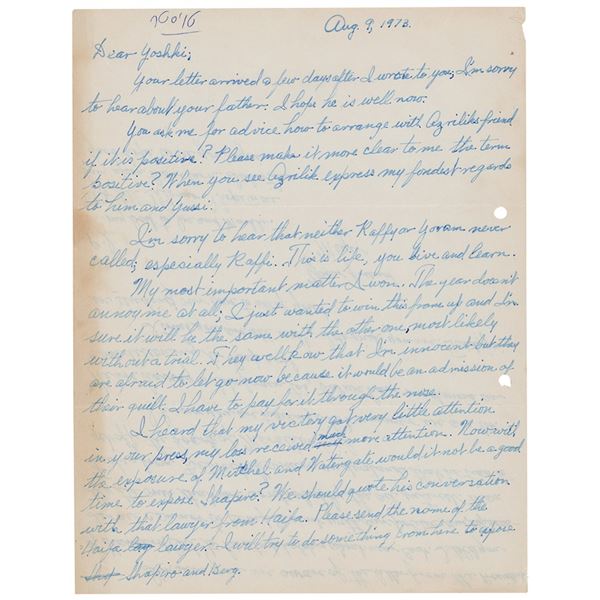 Aug. 9, 1973.
Dear Yoshki;
Your letter arrived a few days after I wrote to you; I'm sorry
to hear about your father. I hope he is well now.
You ask me for advice how to arrange with Azriliks friend
if it is positive? Please make it more clear to me the term
positive? When you see Azrilik express my fondest regards
to him and Yussi.
I'm sorry to hear that neither Raffy or Yoram never
called; especially Raffi. This is life, you live and learn.
My most important matter I won. The year doesn't
annoy me at all; I just wanted to win this frame up and I'm
sure it will be the same with the other one, most likely
without a trial. They well know that I'm innocent but they
are afraid to let go now because it would be an admission of
their guilt. I have to pay for it through the nose.
I heard that my victory got very little attention
in your press, my loss received much more attention. Now with
the exposure of Mitchel and Watergate would it not be a good
time to expose Shapiro? We should quote his conversation
with that lawyer from Haifa. Please send the name of the
Haifa lawyer. I will try to do something from here to expose
Shapiro and Berg.